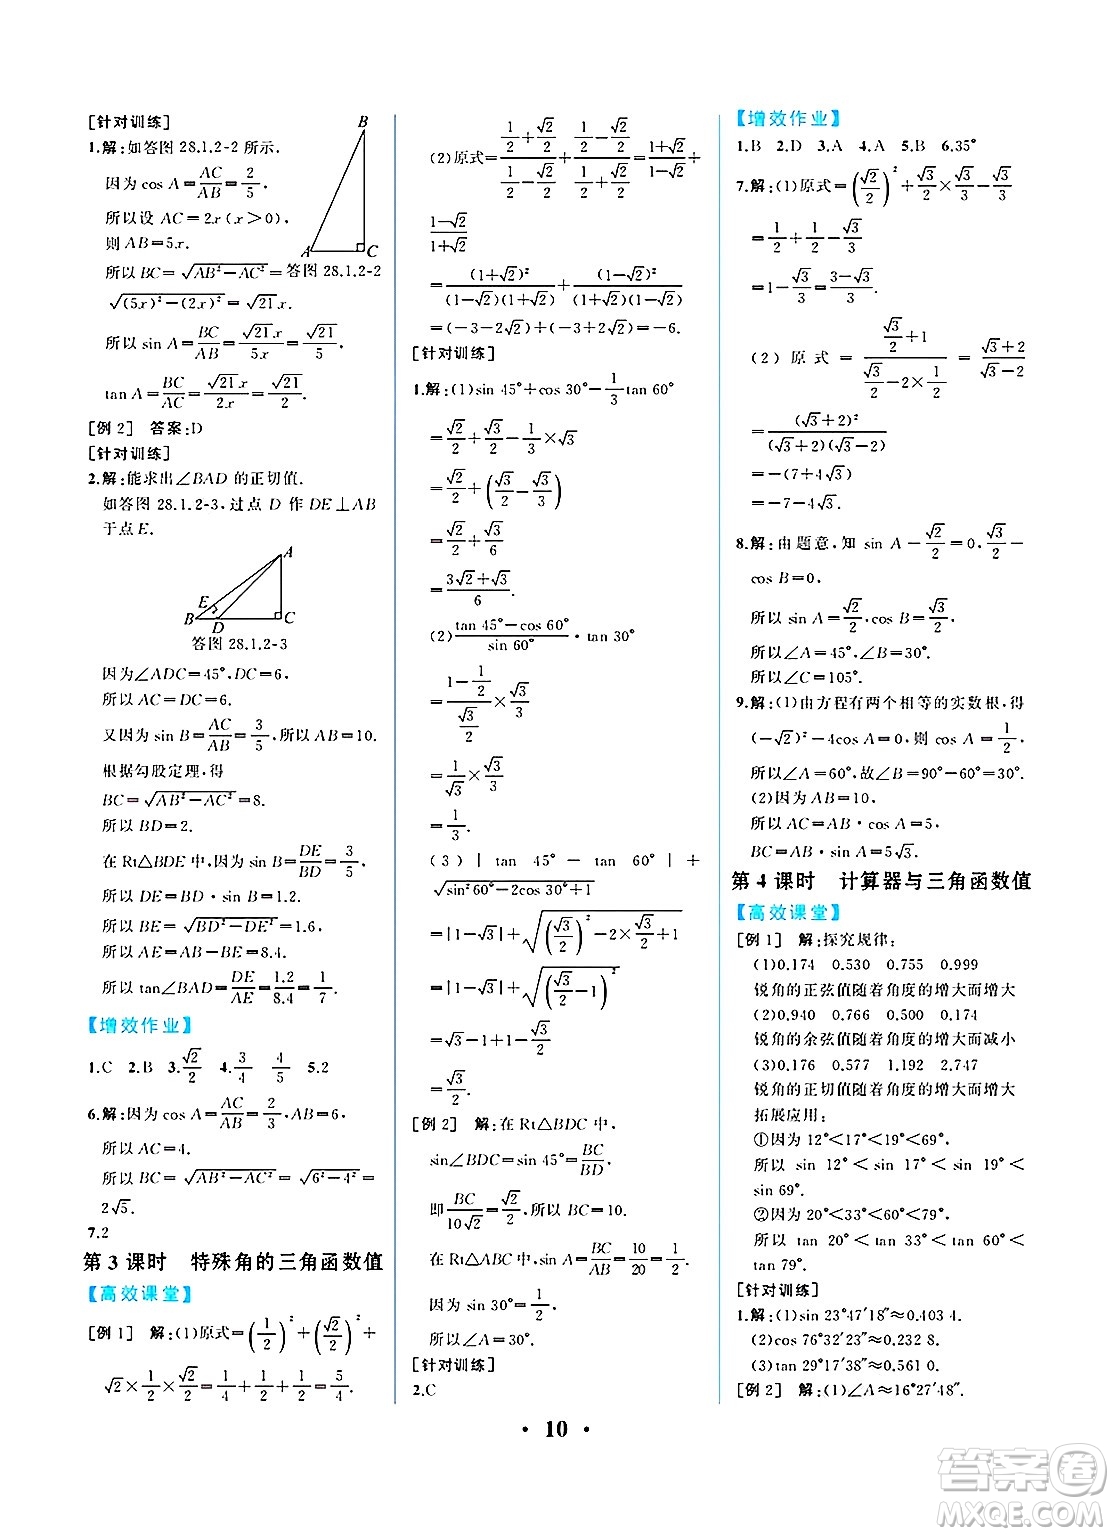 [针对训练]
1.解:如答图 28.1.2-2 所示.
因为 cos A=AC/AB=2/5,
所以设 AC=2x(x>0),
则 AB=5x.
所以 BC=√(AB²-AC²)=
√((5x)²-(2x)²)=√21x.
所以 sin A=BC/AB=√21x/5x=√21/5,
tan A=BC/AC=√21x/2x=√21/2.
B
A
C
答图 28.1.2-2
[例 2] 答案:D
[针对训练]
2.解:能求出∠BAD 的正切值.
如答图 28.1.2-3,过点 D 作 DE⊥AB
于点 E.
A
E
B
D
C
答图 28.1.2-3
因为∠ADC=45°,DC=6,
所以 AC=DC=6.
又因为 sin B=AC/AB=3/5,所以 AB=10.
根据勾股定理,得
BC=√(AB²-AC²)=8.
所以 BD=2.
在 Rt△BDE 中,因为 sin B=DE/BD=3/5,
所以 DE=BD·sin B=1.2,
所以 BE=√(BD²-DE²)=1.6,
所以 AE=AB-BE=8.4.
所以 tan∠BAD=DE/AE=1.2/8.4=1/7.
【增效作业】
1.C 2.B 3.√2/2 4.3/4 4/5 5.2
6.解:因为 cos A=AC/AB=2/3,AB=6,
所以 AC=4.
所以 BC=√(AB²-AC²)=√(6²-4²)=
2√5.
7.2
第 3 课时 特殊角的三角函数值
【高效课堂】
[例 1] 解:(1)原式=(1/2)²+(√2/2)²+
√2×1/2×√2/2=1/4+1/2+1/2=5/4.
(2)原式=(1/2+√2/2)/(1/2-√2/2)+(1/2-√2/2)/(1/2+√2/2)=(1+√2)/(1-√2)÷
(1-√2)/(1+√2)
=(1+√2)²/((1-√2)(1+√2))+(1-√2)²/((1+√2)(1-√2))
=(-3-2√2)+(-3+2√2)=-6.
[针对训练]
1.解:(1)sin 45°+cos 30°-1/3tan 60°
=√2/2+√3/2-1/3×√3
=√2/2+(√3/2-√3/3)
=√2/2+√3/6
=(3√2+√3)/6.
(2)(tan 45°-cos 60°)/sin 60°·tan 30°
=(1-1/2)/(√3/2)×√3/3
=1/√3×√3/3
=1/3.
(3)|tan 45°-tan 60°|+
√(sin²60°-2cos 30°+1)
=|1-√3|+√((√3/2)²-2×√3/2+1)
=|1-√3|+√((√3/2-1)²)
=√3-1+1-√3/2
=√3/2.
[例 2] 解:在 Rt△BDC 中,
sin∠BDC=sin 45°=BC/BD,
即BC/10√2=√2/2,所以 BC=10.
在 Rt△ABC 中,sin A=BC/AB=10/20=1/2,
因为 sin 30°=1/2,
所以∠A=30°.
[针对训练]
2.C
【增效作业】
1.B 2.D 3.A 4.A 5.B 6.35°
7.解:(1)原式=(√2/2)²+√3/2×√3/3-√3/3
=1/2+1/2-√3/3
=1-√3/3=(3-√3)/3.
(2)原式=(√3/2+1)/(√3/2-2×1/2)=(√3+2)/(√3-2)
=(√3+2)²/((√3+2)(√3-2))
=-(7+4√3)
=-7-4√3.
8.解:由题意,知 sin A-√2/2=0,√3/2-
cos B=0,
所以 sin A=√2/2,cos B=√3/2,
所以∠A=45°,∠B=30°.
所以∠C=105°.
9.解:(1)由方程有两个相等的实数根,得
(-√2)²-4cos A=0,则 cos A=1/2,
所以∠A=60°,故∠B=90°-60°=30°.
(2)因为 AB=10,
所以 AC=AB·cos A=5,
BC=AB·sin A=5√3.
第 4 课时 计算器与三角函数值
【高效课堂】
[例 1] 解:探究规律:
(1)0.174 0.530 0.755 0.999
锐角的正弦值随着角度的增大而增大
(2)0.940 0.766 0.500 0.174
锐角的余弦值随着角度的增大而减小
(3)0.176 0.577 1.192 2.747
锐角的正切值随着角度的增大而增大
拓展应用:
①因为 12°<17°<19°<69°,
所以 sin 12°<sin 17°<sin 19°<
sin 69°.
②因为 20°<33°<64°<79°,
所以 tan 20°<tan 33°<tan 64°<
tan 79°.
[针对训练]
1.解:(1)sin 23°47′18″≈0.403 4.
(2)cos 76°32′23″≈0.232 8.
(3)tan 29°17′38″≈0.561 0.
[例 2] 解:(1)∠A≈16°27′48″.
· 10 ·
答案圈
MXQE.COM